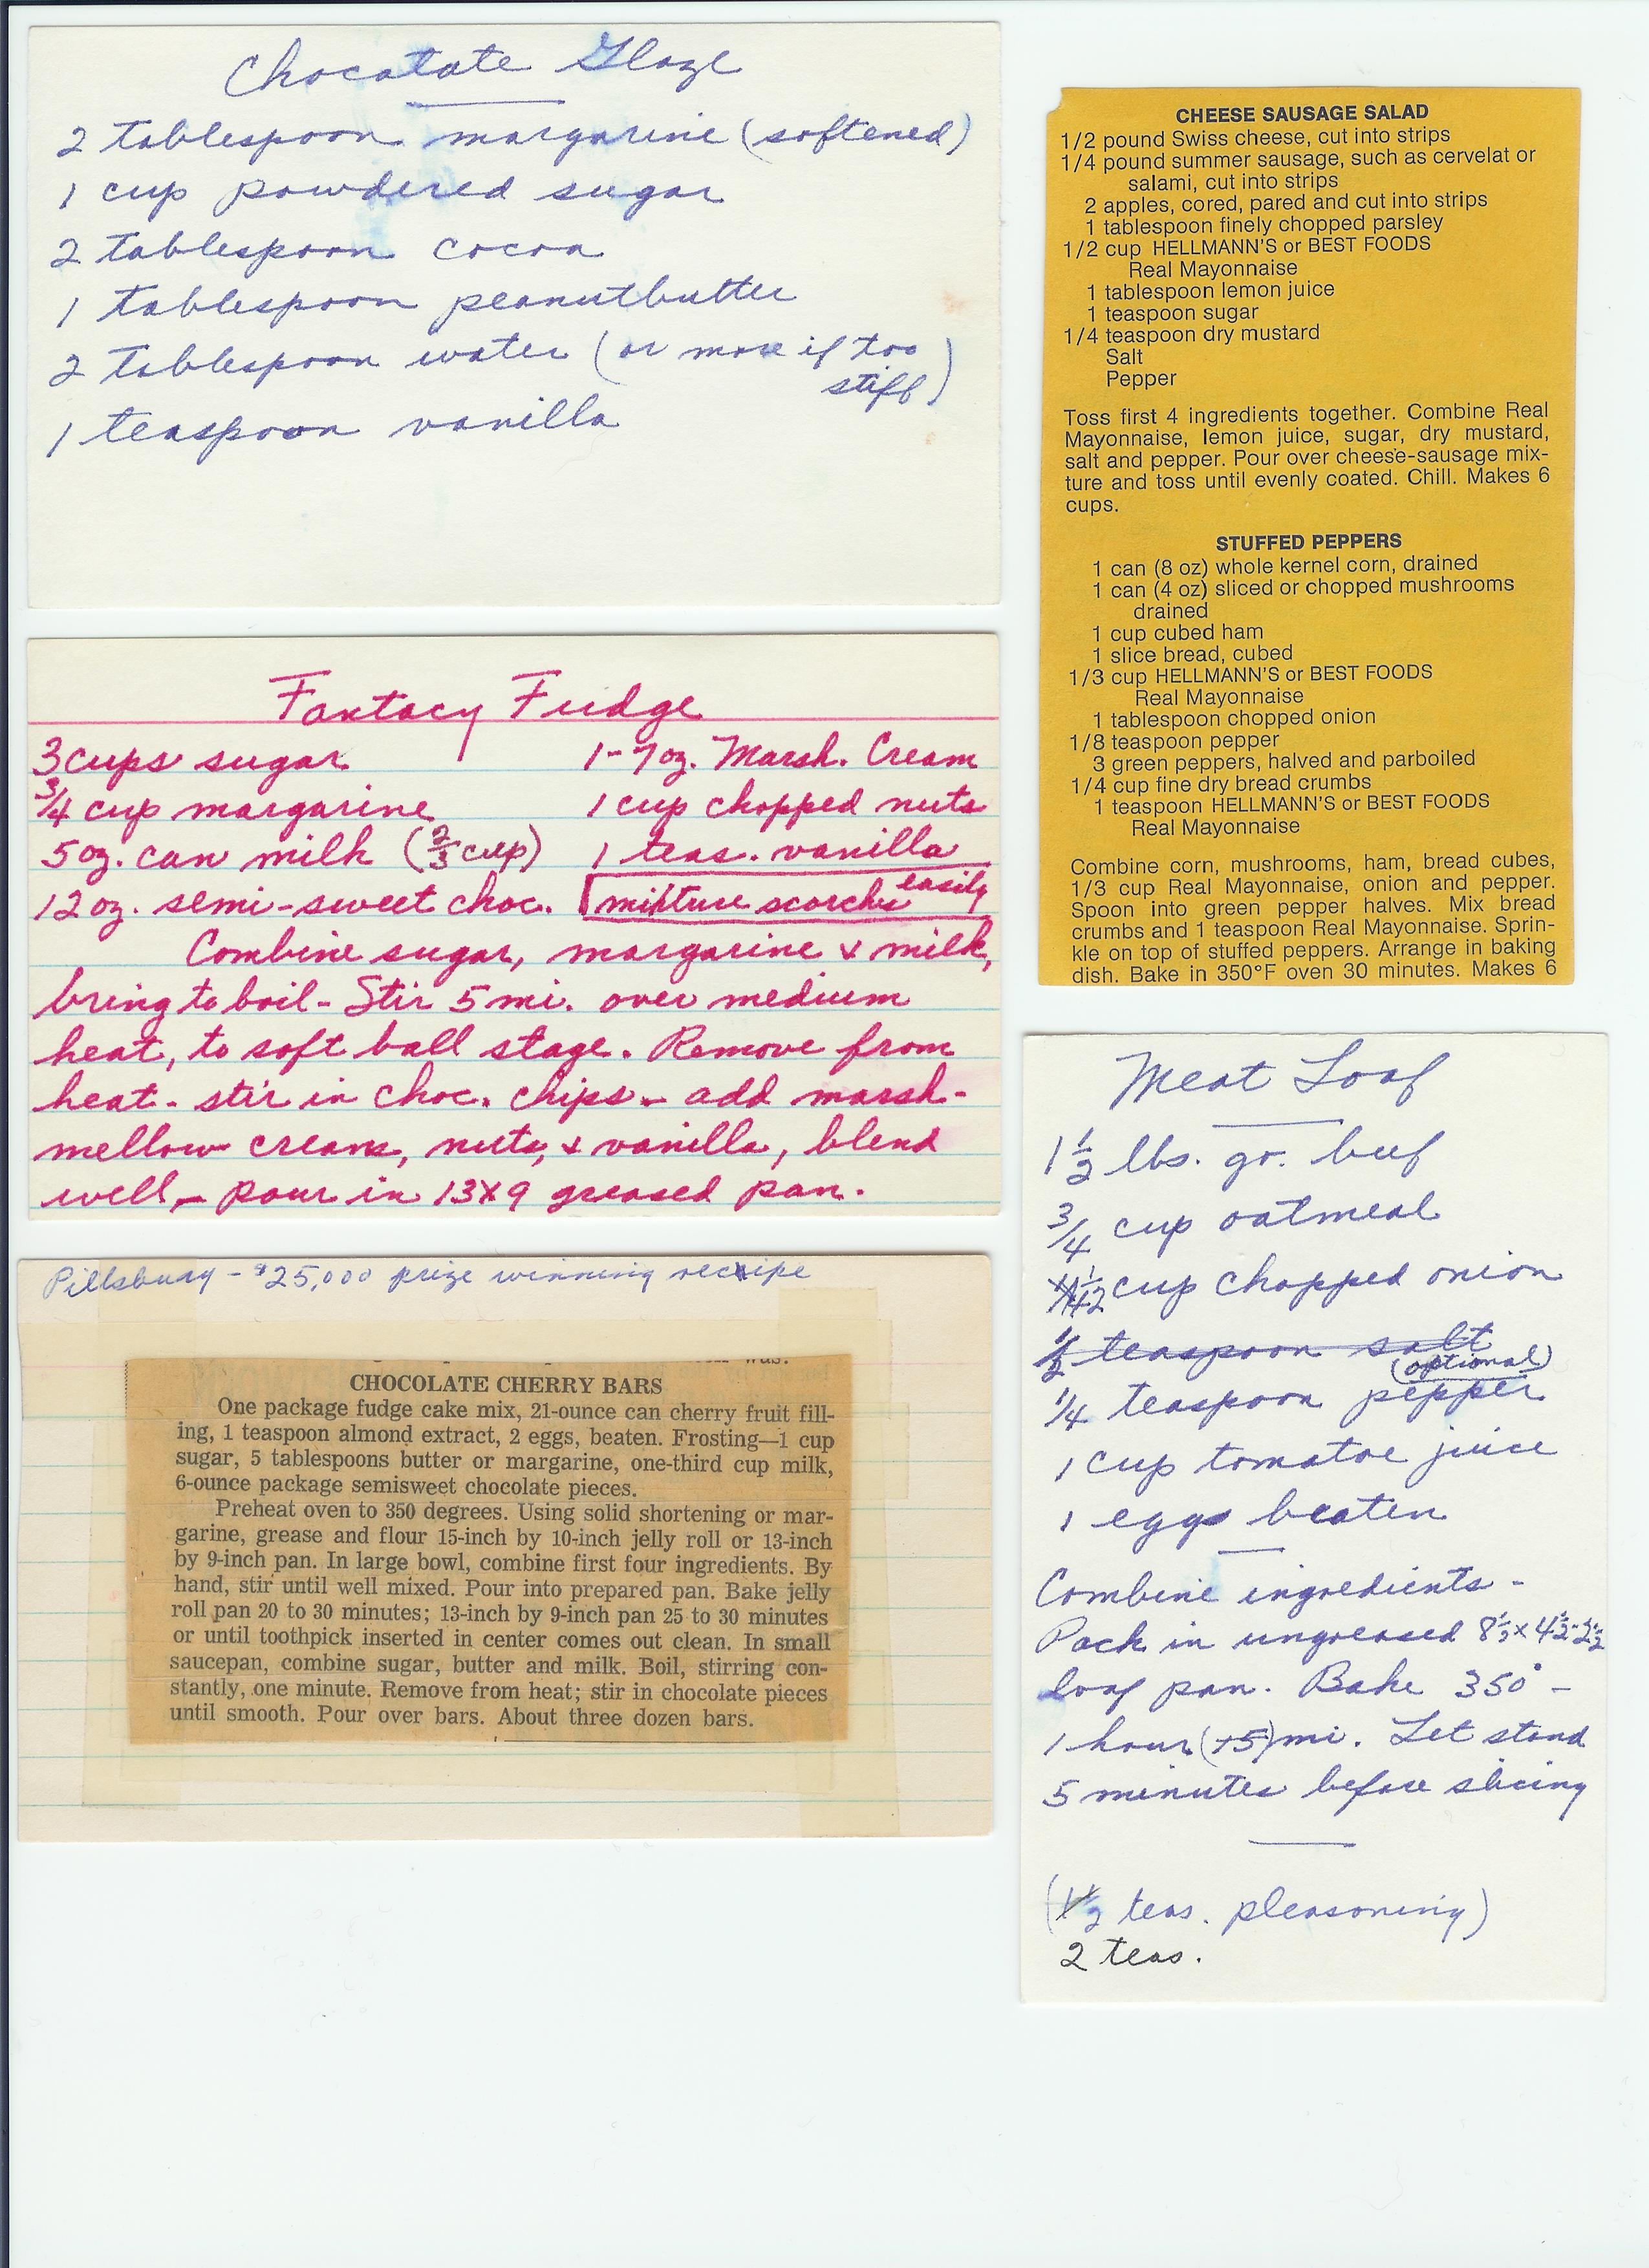 Chocolate Glaze
2 tablespoon margarine (softened)
1 cup powdered sugar
2 tablespoon cocoa
1 tablespoon peanutbutter
2 tablespoon water (or more if too
stiff)
1 teaspoon vanilla
Fantacy Fudge
3 cups sugar
3/4 cup margarine
5 oz. can milk (2/3 cup)
12 oz. semi-sweet choc.
1-7 oz. Marsh. Cream
1 cup chopped nuts
1 teas. vanilla
mixture scorches easily
Combine sugar, margarine & milk,
bring to boil - Stir 5 mi. over medium
heat, to soft ball stage. Remove from
heat - stir in choc. chips - add marsh-
mellow cream, nuts, & vanilla, blend
well - pour in 13X9 greased pan.
Pillsbury - $25,000 prize winning recipe
was.
CHOCOLATE CHERRY BARS
One package fudge cake mix, 21-ounce can cherry fruit fill-
ing, 1 teaspoon almond extract, 2 eggs, beaten. Frosting—1 cup
sugar, 5 tablespoons butter or margarine, one-third cup milk,
6-ounce package semisweet chocolate pieces.
Preheat oven to 350 degrees. Using solid shortening or mar-
garine, grease and flour 15-inch by 10-inch jelly roll or 13-inch
by 9-inch pan. In large bowl, combine first four ingredients. By
hand, stir until well mixed. Pour into prepared pan. Bake jelly
roll pan 20 to 30 minutes; 13-inch by 9-inch pan 25 to 30 minutes
or until toothpick inserted in center comes out clean. In small
saucepan, combine sugar, butter and milk. Boil, stirring con-
stantly, one minute. Remove from heat; stir in chocolate pieces
until smooth. Pour over bars. About three dozen bars.
CHEESE SAUSAGE SALAD
1/2 pound Swiss cheese, cut into strips
1/4 pound summer sausage, such as cervelat or
salami, cut into strips
2 apples, cored, pared and cut into strips
1 tablespoon finely chopped parsley
1/2 cup HELLMANN'S or BEST FOODS
Real Mayonnaise
1 tablespoon lemon juice
1 teaspoon sugar
1/4 teaspoon dry mustard
Salt
Pepper
Toss first 4 ingredients together. Combine Real
Mayonnaise, lemon juice, sugar, dry mustard,
salt and pepper. Pour over cheese-sausage mix-
ture and toss until evenly coated. Chill. Makes 6
cups.
STUFFED PEPPERS
1 can (8 oz) whole kernel corn, drained
1 can (4 oz) sliced or chopped mushrooms
drained
1 cup cubed ham
1 slice bread, cubed
1/3 cup HELLMANN'S or BEST FOODS
Real Mayonnaise
1 tablespoon chopped onion
1/8 teaspoon pepper
3 green peppers, halved and parboiled
1/4 cup fine dry bread crumbs
1 teaspoon HELLMANN'S or BEST FOODS
Real Mayonnaise
Combine corn, mushrooms, ham, bread cubes,
1/3 cup Real Mayonnaise, onion and pepper.
Spoon into green pepper halves. Mix bread
crumbs and 1 teaspoon Real Mayonnaise. Sprin-
kle on top of stuffed peppers. Arrange in baking
dish. Bake in 350°F oven 30 minutes. Makes 6
Meat Loaf
1 1/2 lbs. gr. beef
3/4 cup oatmeal
1/2 cup chopped onion
1/2 teaspoon salt
(optional)
1/4 teaspoon pepper
1 cup tomatoe juice
1 egg beaten
Combine ingredients -
Pack in ungreased 8 1/2 x 4 1/2 - 2 1/2
loaf pan. Bake 350° -
1 hour (+5) mi. Let stand
5 minutes before slicing
(1 1/2 teas. pleasoning)
2 teas.